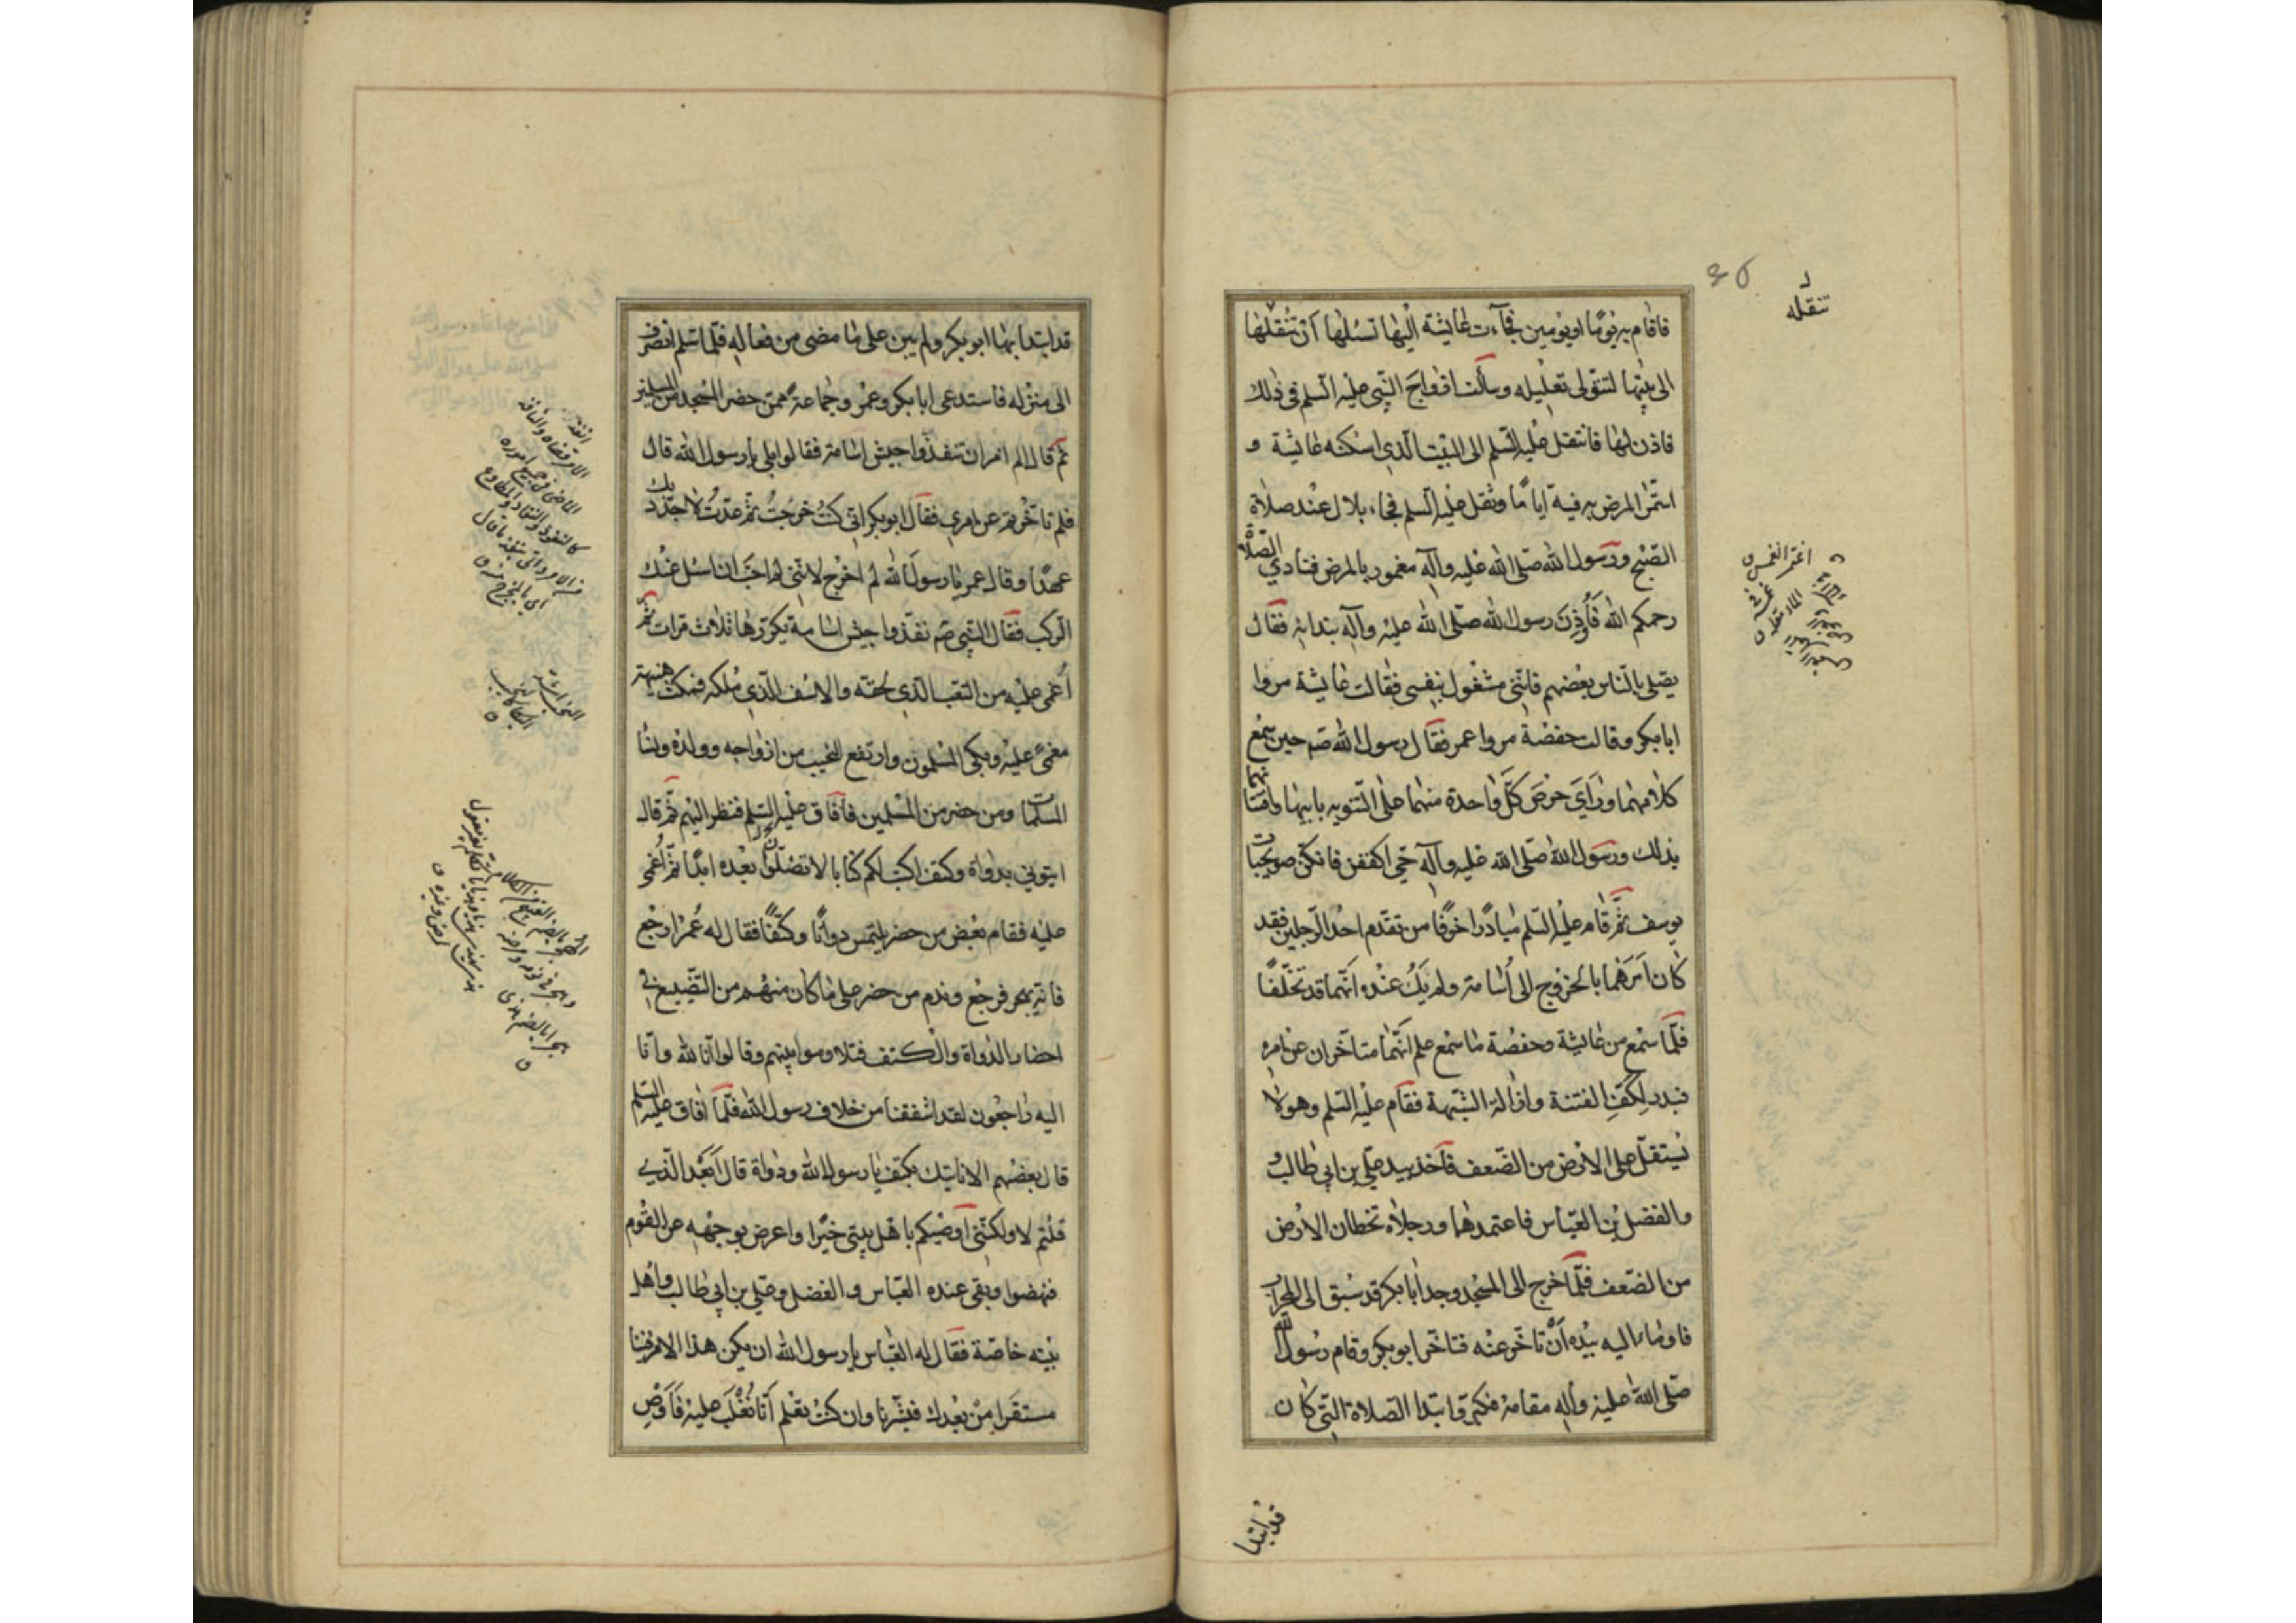 فاقام به يومًا او يومين فجآءت عايشة اليها تسئلها أن تنقلها
الى بيتها لتتولى تعليله وسألت ازواج النّبي عليه السّلم في ذلك
فاذن لها فانتقل عليه السّلم الى البيت الّذي اسكنه عايشة و
استمرّ المرض به فيه ايامًا وثقل عليه السّلم فجاء بلال عند صلاة
الصّبح ورسول الله صلّى الله عليه وآله مغمور بالمرض فنادي الصّلاة
رحمكم الله فأُوذن رسول الله صلّى الله عليه وآله بندائه فقال
يصلي بالنّاس بعضهم فانّني مشغول بنفسي فقالت عايشة مروا
ابابكر وقالت حفصة مروا عمر فقال رسول الله صم حين سمع
كلامهما وراي حرص كلّ واحدة منهما على التّنويه بابيها وافتتانهما
بذلك ورسول الله صلّى الله عليه وآله حيّ اكففن فانكنّ صويحبات
يوسف ثمّ قام عليه السّلم مبادرًا خوفًا من تقدّم احد الرّجلين فقد
كان امرهما بالخروج الى أسامة ولم يك عنده انّهما قد تخلّفا
فلمّا سمع من عايشة وحفصة ما سمع علم انّهما متاخران عن امره
فبدر لكفّ الفتنة وازالة الشّبهة فقام عليه السّلم وهو لا
يستقلّ على الارض من الضّعف فاخذ بيد علي بن ابي طالب و
والفضل بن العبّاس فاعتمدهما ورجلاه تخطان الارض
من الضّعف فلمّا خرج الى المسجد وجد ابابكر قد سبق الى المحراب
فاوماء اليه بيده أن تاخّر عنه فتاخّر ابوبكر وقام رسول الله
صلّى الله عليه وآله مقامه فكبّر وابتدا الصّلاة الّتي كان
قد ابتدا
تنقله
قد ابتدا بها ابوبكر ولم يبن على ما مضى من فعاله فلمّا سلّم انصرف
الى منزله فاستدعى ابابكر وعمر وجماعة ممّن حضر المسجد من المسلمين
ثمّ قال الم امر ان تنفذوا جيش اسامة فقالوا بلى يا رسول الله قال
فلم تاخّرتم عن امري فقال ابوبكر انّي كنت خرجت ثمّ عدّت لاجدّد بك
عهدًا وقال عمر يا رسول الله لم اخرج لانّني لم احبّ ان اسئل عنك
الرّكب فقال النّبي صم نفذوا جيش اسامة يكرّرها ثلاث مرات ثمّ
أُغمي عليه من التّعب الّذي لحقه والاسف الّذي ملكه فمكث هنيهة
مغمىً عليه وبكى المسلمون وارتفع النّحيب من ازواجه وولده ونسا
المسلمات ومن حضر من المسلمين فافاق عليه السّلم فنظر اليهم ثمّ قال
ايتوني بدواة وكتف اكتب لكم كتابا لا تضلّوا بعده ابدًا ثمّ أغمي
عليه فقام بعض من حضر يلتمس دواتًا وكتفًا فقال له عمر ارجع
فانّه يهجر فرجع وندم من حضر على ما كان منهم من التّضييع في
احضار الدّواة والكتف فتلاوموا بينهم وقالوا انّا لله وانّا
اليه راجعون لقد اشفقنا من خلاف رسول الله فلمّا افاق عليه السّلم
قال بعضهم الا ناتيك بكتف يا رسول الله ودواة قال أبعد الّذي
قلتم لا ولكنّني اوصيكم باهل بيتي خيرًا واعرض بوجهه عن القوم
فنهضوا وبقي عنده العبّاس والفضل وعلي بن ابي طالب واهل
بيته خاصّة فقال له العبّاس يا رسول الله ان يكن هذا الامر فينا
مستقرا من بعدك فبشّرنا وان كنت تعلم أنّا نغلب عليه فاوص